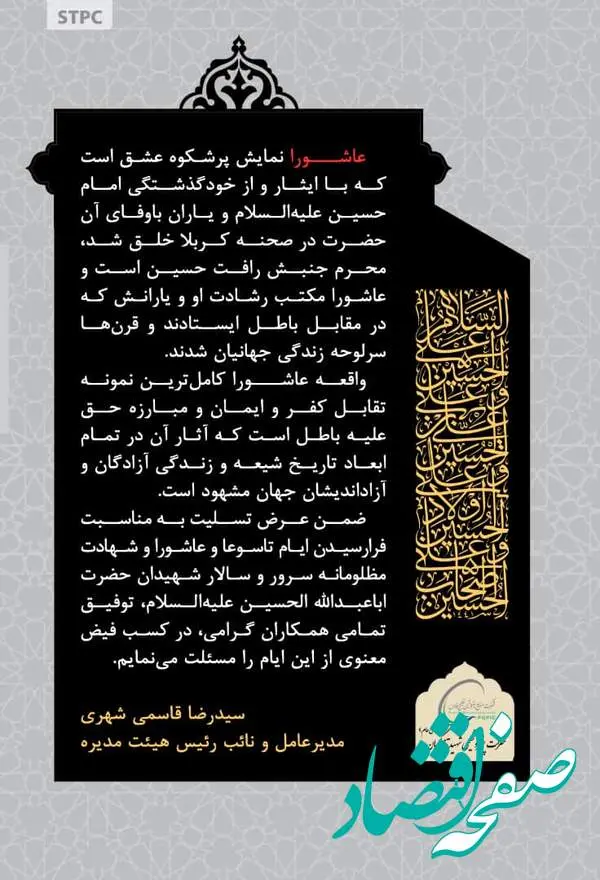 STPC
عاشورا نمایش پرشکوه عشق است
که با ایثار و از خودگذشتگی امام
حسین علیه‌السلام و یاران باوفای آن
حضرت در صحنه کربلا خلق شد،
محرم جنبش رافت حسین است و
عاشورا مکتب رشادت او و یارانش که
در مقابل باطل ایستادند و قرن‌ها
سرلوحه زندگی جهانیان شدند.
واقعه عاشورا کامل‌ترین نمونه
تقابل کفر و ایمان و مبارزه حق
علیه باطل است که آثار آن در تمام
ابعاد تاریخ شیعه و زندگی آزادگان و
آزاداندیشان جهان مشهود است.
ضمن عرض تسلیت به مناسبت
فرارسیدن ایام تاسوعا و عاشورا و شهادت
مظلومانه سرور و سالار شهیدان حضرت
اباعبدالله الحسین علیه‌السلام، توفیق
تمامی همکاران گرامی، در کسب فیض
معنوی از این ایام را مسئلت می‌نمایم.
سیدرضا قاسمی شهری
مدیرعامل و نائب رئیس هیئت مدیره
السلام
علی
الحسین
و علی
علی بن
الحسین
و علی
اولاد
الحسین
و علی
اصحاب
الحسین
صفحه اقتصاد